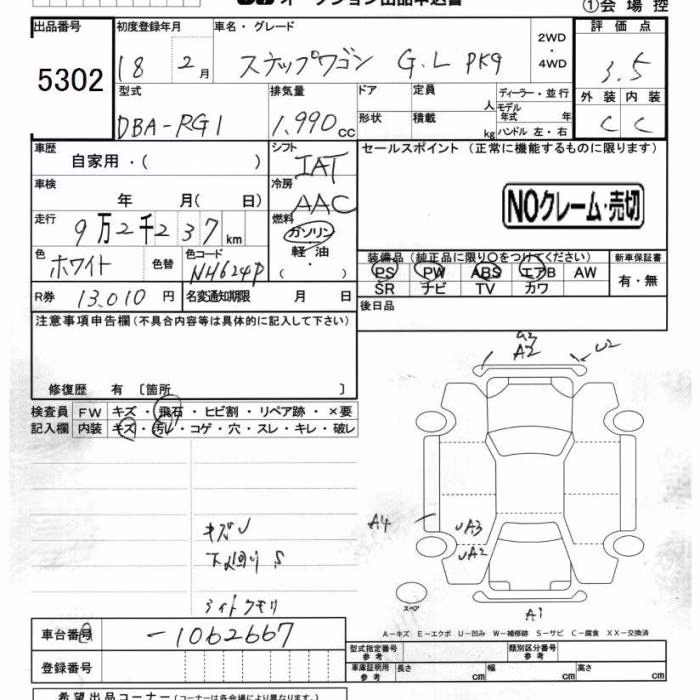 オークション出品申込書
①会場控
出品番号 初度登録年月 車名・グレード 評価点
5302
18 2月 ステップワゴン G.L PKG 2WD・4WD 3.5
型式 排気量 ドア 定員 人 ディーラー・並行 外装 内装
モデル年式 年
DBA-RG1 1.990cc 形状 積載 kg ハンドル 左・右 C C
車歴 シフト セールスポイント(正常に機能するものに限ります)
自家用・( ) IAT
車検 冷房
年 月(日) AAC
NOクレーム・売切
走行 燃料
9万2千237km ガソリン・軽油・( )
色 色替 色コード 装備品(純正品に限り○をつけてください) 新車保証書
ホワイト NH624P PS PW ABS エアB AW 有・無
SR ナビ TV カワ
R券 13.010円 名変通知期限 月 日 後日品
注意事項申告欄(不具合内容等は具体的に記入して下さい)
修復歴 有〔箇所 〕
検査員 FW キズ・飛石・ヒビ割・リペア跡・×要
記入欄 内装 キズ・汚レ・コゲ・穴・スレ・キレ・破レ
A2
U2
A4
UA3
UA2
キズU
下廻り S
ライトクモリ
スペア
A1
A-キズ E-エクボ U-凹み W-補修跡 S-サビ C-腐食 XX-交換済
車台番号 -1062667
型式指定番号 参考 類別区分番号 参考
登録番号 車庫証明用 参考 長さ cm 幅 cm 高さ cm
希望出品コーナー(コーナーは各会場により異なります)